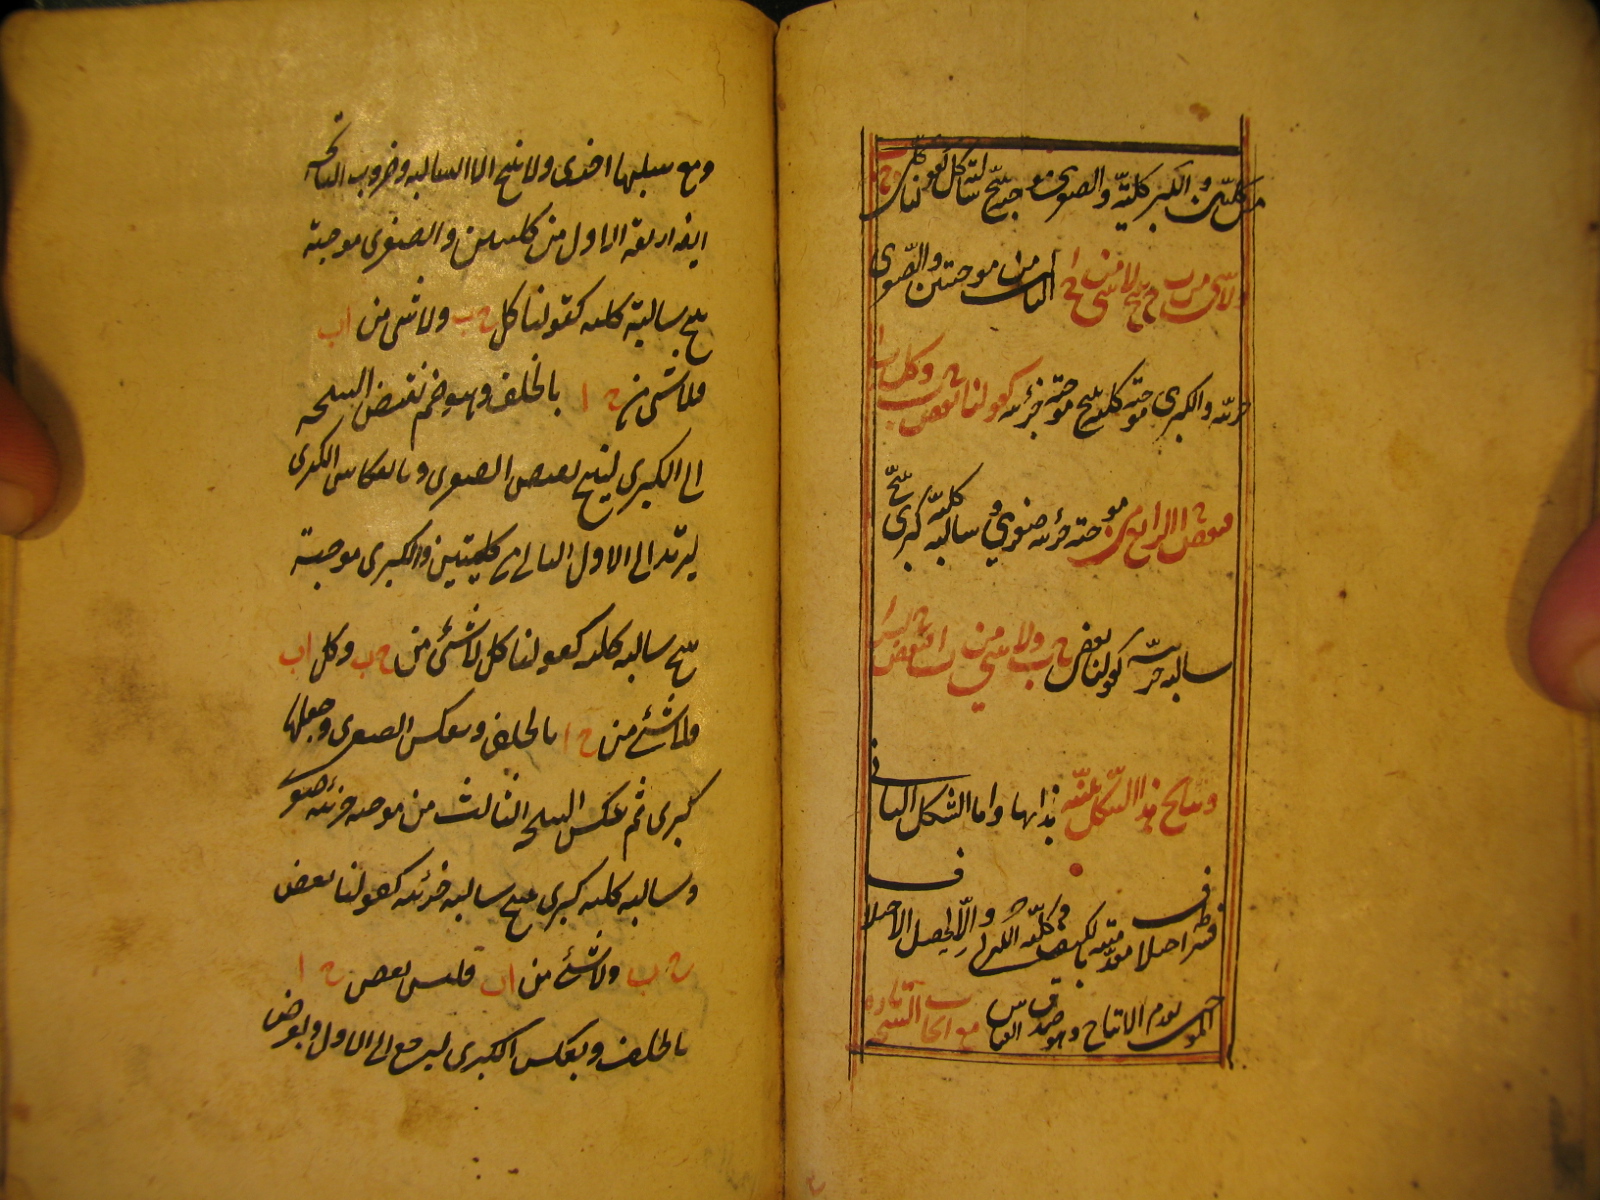 من كليتين والكبرى كلية والصغرى موجبة ينتج سالبة كلية كقولنا كل ج ب
ولا شئ من ب ا ينتج لا شئ من ج ا الثالث من موجبتين والصغرى
جزئية والكبرى موجبة كلية ينتج موجبة جزئية كقولنا بعض ج ب وكل ب ا
فبعض ج ا الرابع من موجبة جزئية صغرى و سالبة كلية كبرى ينتج
سالبة جزئية كقولنا بعض ج ب ولا شئ من ب ا فبعض ج ليس ا
ونتايج هذا الشكل بينة بذاتها واما الشكل الثانى
فشرطه اختلاف مقدمتيه بالكيف وكلية الكبرى والا لحصل الاختلاف
الموجب لعدم الانتاج وهو صدق القياس مع ايجاب النتيجة تارة
ومع سلبها اخرى ولا ينتج الا السالبة وضروب الناتجة
ايضا اربعة الاول من كليتين والصغرى موجبة
ينتج سالبة كلية كقولنا كل ج ب ولا شئ من ا ب
فلا شئ من ج ا بالخلف وهو ضم نقيض النتيجة
الى الكبرى لينتج نقيض الصغرى وبانعكاس الكبرى
ليرتد الى الاول الثانى من كليتين والكبرى موجبة
ينتج سالبة كلية كقولنا كل لا شئ من ج ب وكل ا ب
فلا شئ من ج ا بالخلف وبعكس الصغرى وجعلها
كبرى ثم عكس النتيجة الثالث من موجبة جزئية صغرى
وسالبة كلية كبرى ينتج سالبة جزئية كقولنا بعض
ج ب ولا شئ من ا ب فليس بعض ج ا
بالخلف وبعكس الكبرى ليرجع الى الاول وبفرض